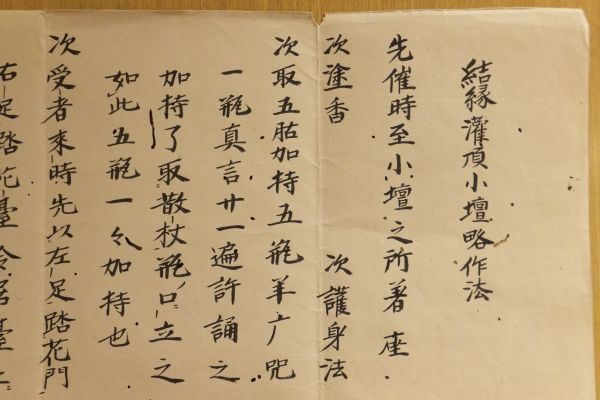 結縁灌頂小壇略作法
先催時至小壇之所著座
次塗香 次護身法
次取五䏦加持五瓶羊广咒
一瓶真言廿一遍許誦之
加持了取散杖瓶口立之
如此五瓶一々加持也
次受者來時先以左足踏花門
右足踏花臺令居臺上